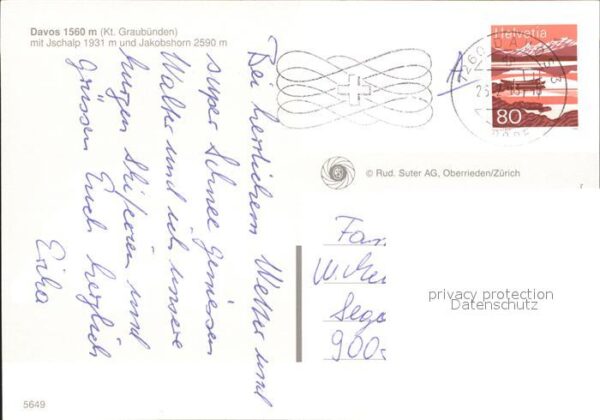 Davos 1560 m (Kt. Graubünden)
mit Jschalp 1931 m und Jakobshorn 2590 m
Bei herrlichem Wetter und
super Schnee geniessen
Walter und ich unsere
kurzen Skiferien und
grüssen Euch herzlich
Erika
Helvetia
80
A
© Rud. Suter AG, Oberrieden/Zürich
Fam
Sega
900
privacy protection
Datenschutz
5649